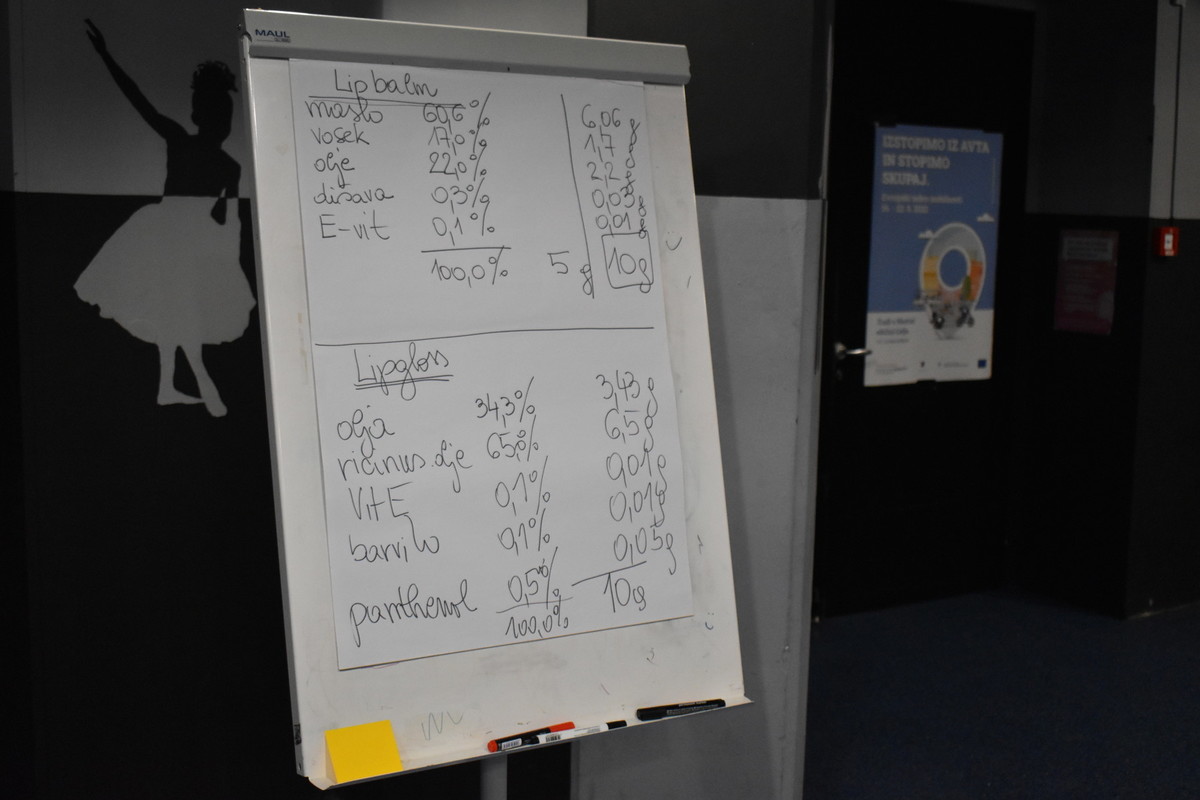 MAUL
Lipbalm
maslo 60,6% 6,06 g
vosek 17,0% 1,7 g
olje 22,0% 2,2 g
dišava 0,3% 0,03 g
E-vit 0,1% 0,01 g
100,0% 5 g 10g
Lipgloss
olja 34,3% 3,43 g
ricinus. olje 65,0% 6,5 g
Vit E 0,1% 0,01 g
barvilo 0,1% 0,01 g
panthenol 0,5% 0,05 g
100,0% 10g
IZSTOPIMO IZ AVTA
IN STOPIMO
SKUPAJ.